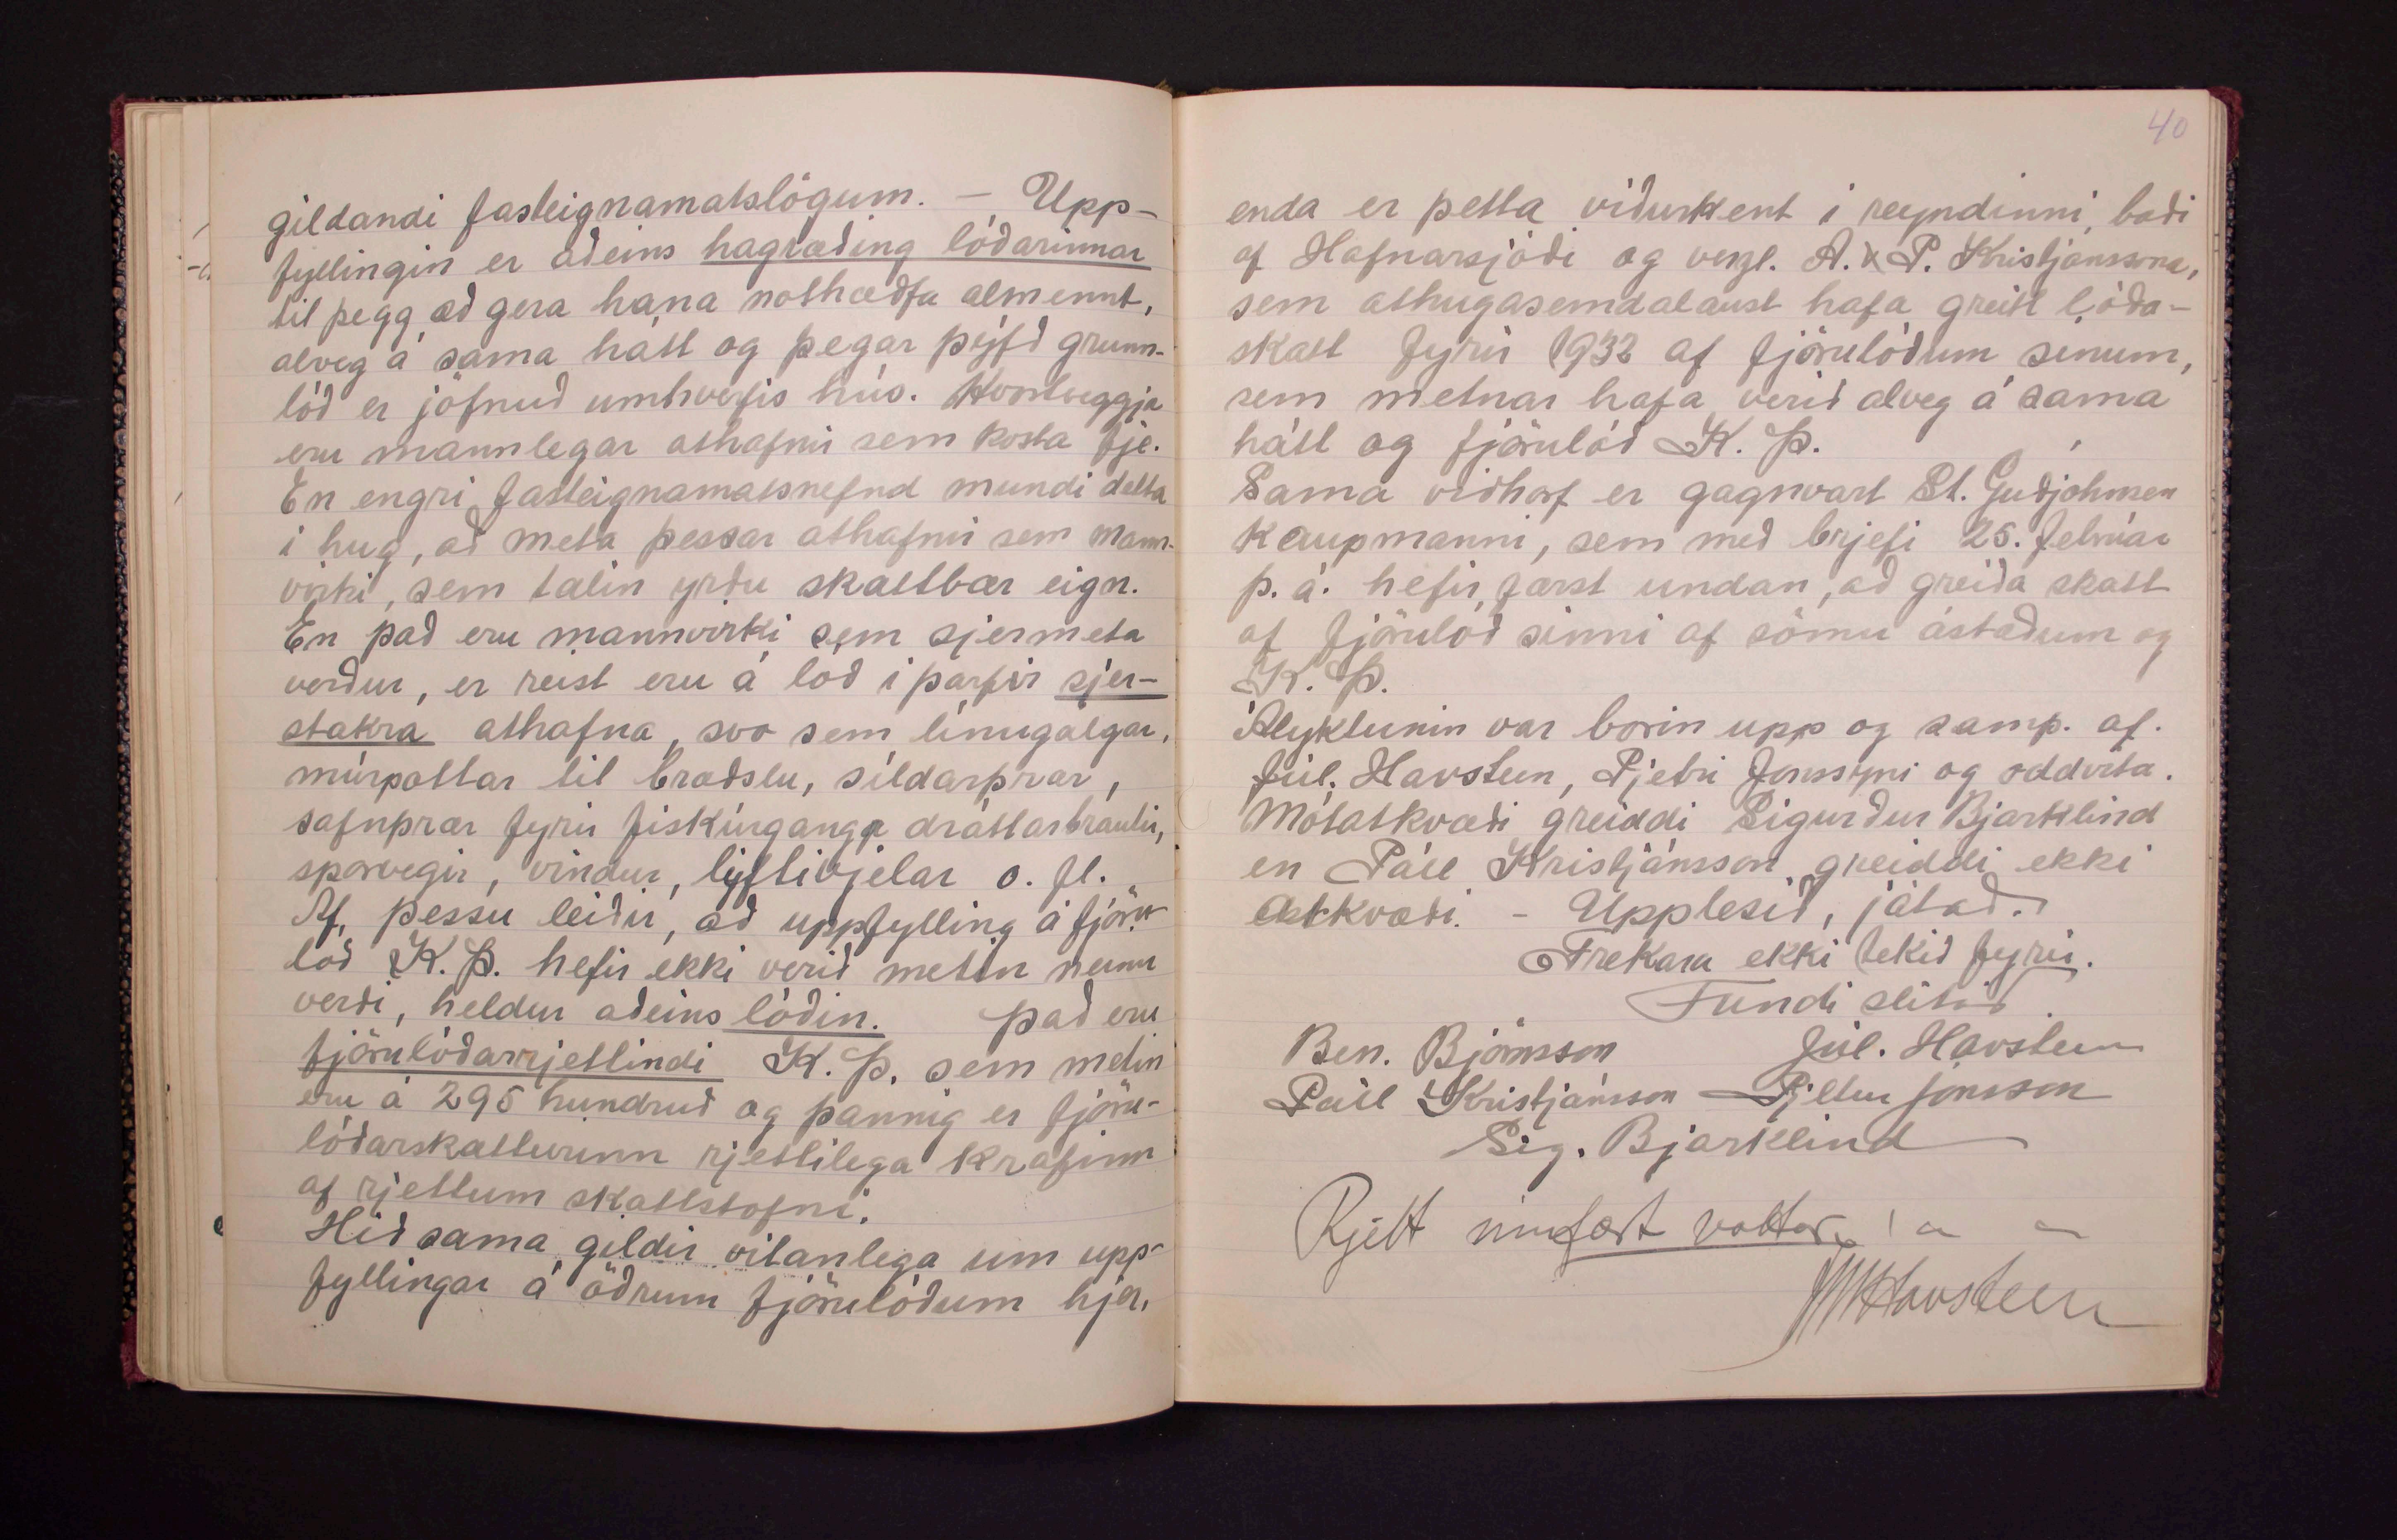 gildandi fasteignamatslögum. — Upp-
fyllingin er aðeins hagræðing lóðarinnar
til þegg að gera hana nothæfa almennt,
alveg á sama hátt og þegar þýfð grunn-
lóð er jöfnuð umhverfis hús. Hvortveggja
eru mannlegar athafnir sem kosta fje.
En engri fasteignamatsnefnd mundi detta
í hug, að meta þessar athafnir sem mann-
virki, sem talin yrðu skattbær eign.
En það eru mannvirki sem sjermeta
verður, er reist eru á lóð í þarfir sjer-
stakra athafna, svo sem línugálgar,
múrpottar til bræðslu, síldarþrær,
safnþrær fyrir fiskúrgang, dráttarbrautir,
sporvegir, vindur, lyftivjelar o. fl.
Af þessu leiðir, að uppfylling á fjöru-
lóð K. Þ. hefir ekki verið metin neinu
verði, heldur aðeins lóðin. Það eru
fjörulóðarrjettindi K. Þ. sem metin
eru á 295 hundruð og þannig er fjöru-
lóðarskatturinn rjettilega krafinn
af rjettum skattstofni.
Hið sama gildir vitanlega um upp-
fyllingar á öðrum fjörulóðum hjer,
40
enda er þetta viðurkent í reyndinni, bæði
af Hafnarsjóði og verzl. A. & P. Kristjánssona,
sem athugasemdalaust hafa greitt lóða-
skatt fyrir 1932 af fjörulóðum sínum,
sem metnar hafa verið alveg á sama
hátt og fjörulóð K. Þ.
Sama viðhorf er gagnvart St. Guðjohnsen
kaupmanni, sem með brjefi 25. febrúar
þ. á. hefir færst undan, að greiða skatt
af fjörulóð sinni af sömu ástæðum og
K. Þ.
Ályktunin var borin upp og samþ. af.
Júl. Havsteen, Pjetri Jónssyni og oddvita.
Mótatkvæði greiddi Sigurður Bjarklind
en Páll Kristjánsson greiddi ekki
atkvæði. - Upplesið, játað.
Frekara ekki tekið fyrir.
Fundi slitið
Ben. Björnsson Júl. Havsteen
Páll Kristjánsson Pjetur Jónsson
Sig. Bjarklind
Rjett innfært vottar
Havsteen